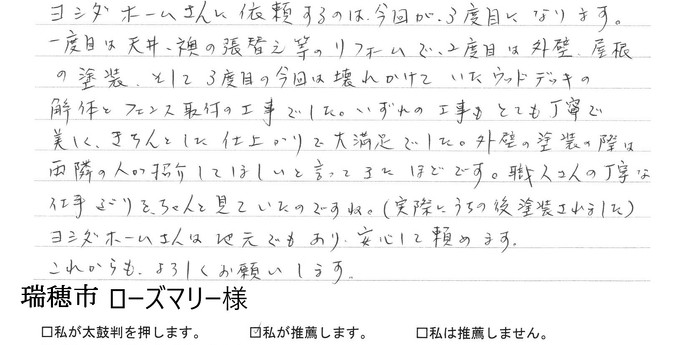 ヨシダホームさんに依頼するのは、今回が、3度目になります。
一度目は天井、襖の張替え等のリフォームで、2度目は外壁、屋根
の塗装、そして3度目の今回は壊れかけていたウッドデッキの
解体とフェンス取付の工事でした。いずれの工事もとても丁寧で
美しく、きちんとした仕上がりで大満足でした。外壁の塗装の際は
両隣の人が紹介してほしいと言ってきたほどです。職人さんの丁寧な
仕事ぶりをちゃんと見ていたのですね。(実際にうちの後塗装されました)
ヨシダホームさんは地元でもあり、安心して頼めます。
これからも、よろしくお願いします。
瑞穂市 ローズマリー様
□私が太鼓判を押します。 ☑私が推薦します。 □私は推薦しません。